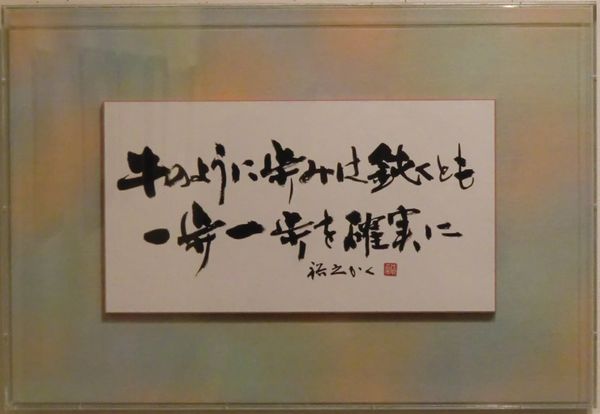 牛のように歩みは鈍くとも
一歩一歩を確実に
裕之かく